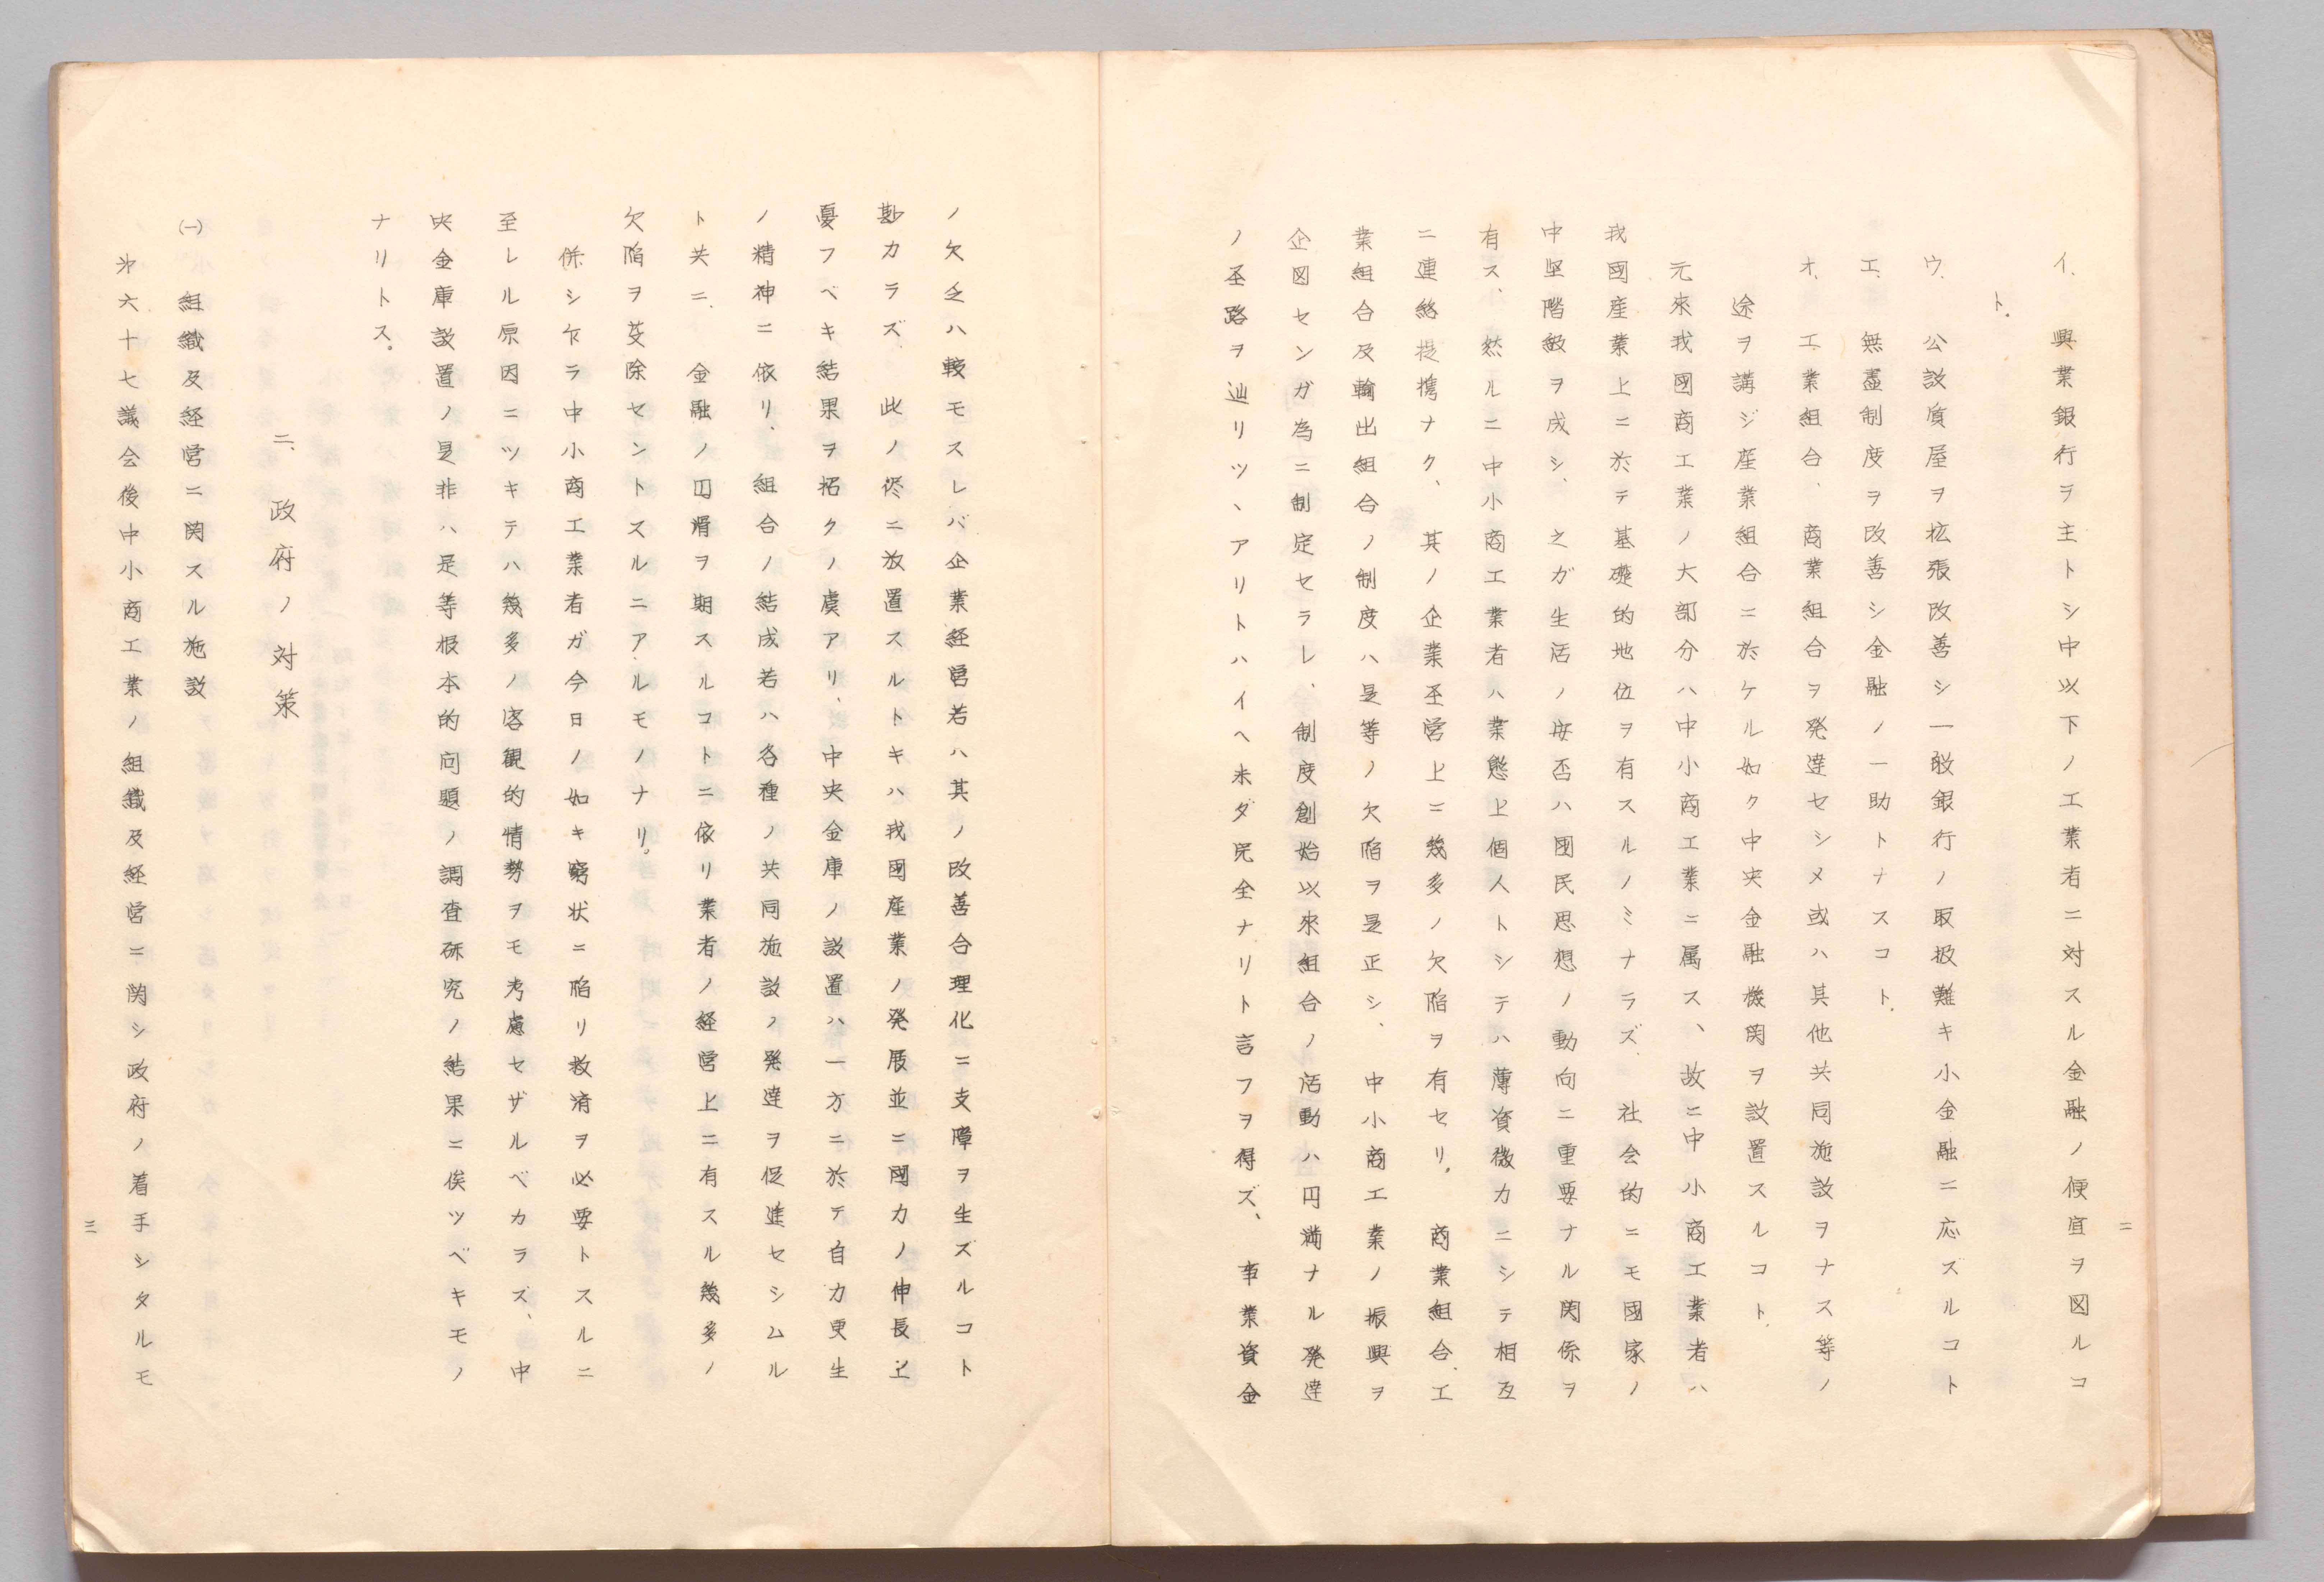 二
イ、興業銀行ヲ主トシ中以下ノ工業者ニ対スル金融ノ便宜ヲ図ルコ
ト、
ウ、公設質屋ヲ拡張改善シ一般銀行ノ取扱難キ小金融ニ応ズルコト
エ、無盡制度ヲ改善シ金融ノ一助トナスコト、
オ、工業組合、商業組合ヲ発達セシメ或ハ其他共同施設ヲナス等ノ
途ヲ講ジ産業組合ニ於ケル如ク中央金融機関ヲ設置スルコト、
元來我國商工業ノ大部分ハ中小商工業ニ属ス、故ニ中小商工業者ハ
我國産業上ニ於テ基礎的地位ヲ有スルノミナラズ、社会的ニモ國家ノ
中堅階級ヲ成シ、之ガ生活ノ安否ハ國民思想ノ動向ニ重要ナル関係ヲ
有ス、然ルニ中小商工業者ハ業態上個人トシテハ薄資微力ニシテ相互
ニ連絡提携ナク、其ノ企業経営上ニ幾多ノ欠陥ヲ有セリ。商業組合、工
業組合及輸出組合ノ制度ハ是等ノ欠陥ヲ是正シ、中小商工業ノ振興ヲ
企図センガ為ニ制定セラレ、制度創始以來組合ノ活動ハ円満ナル発達
ノ圣路ヲ辿リツヽアリトハイヘ未ダ完全ナリト言フヲ得ズ、事業資金
ノ欠乏ハ較モスレバ企業経営若ハ其ノ改善合理化ニ支障ヲ生ズルコト
尠カラズ、此ノ侭ニ放置スルトキハ我國産業ノ発展並ニ國力ノ伸長上
憂フベキ結果ヲ招クノ虞アリ、中央金庫ノ設置ハ一方ニ於テ自力更生
ノ精神ニ依リ、組合ノ結成若ハ各種ノ共同施設ノ発達ヲ促進セシムル
ト共ニ、金融ノ円滑ヲ期スルコトニ依リ業者ノ経営上ニ有スル幾多ノ
欠陥ヲ芟除セントスルニアルモノナリ。
併シ乍ラ中小商工業者ガ今日ノ如キ窮状ニ陥リ救済ヲ必要トスルニ
至レル原因ニツキテハ幾多ノ客観的情勢ヲモ考慮セザルベカラズ、中
央金庫設置ノ是非ハ是等根本的问題ノ調査研究ノ結果ニ俟ツベキモノ
ナリトス。
二、政府ノ対策
㈠組織及経営ニ関スル施設
㐧六十七議会後中小商工業ノ組織及経営ニ関シ政府ノ着手シタルモ
三